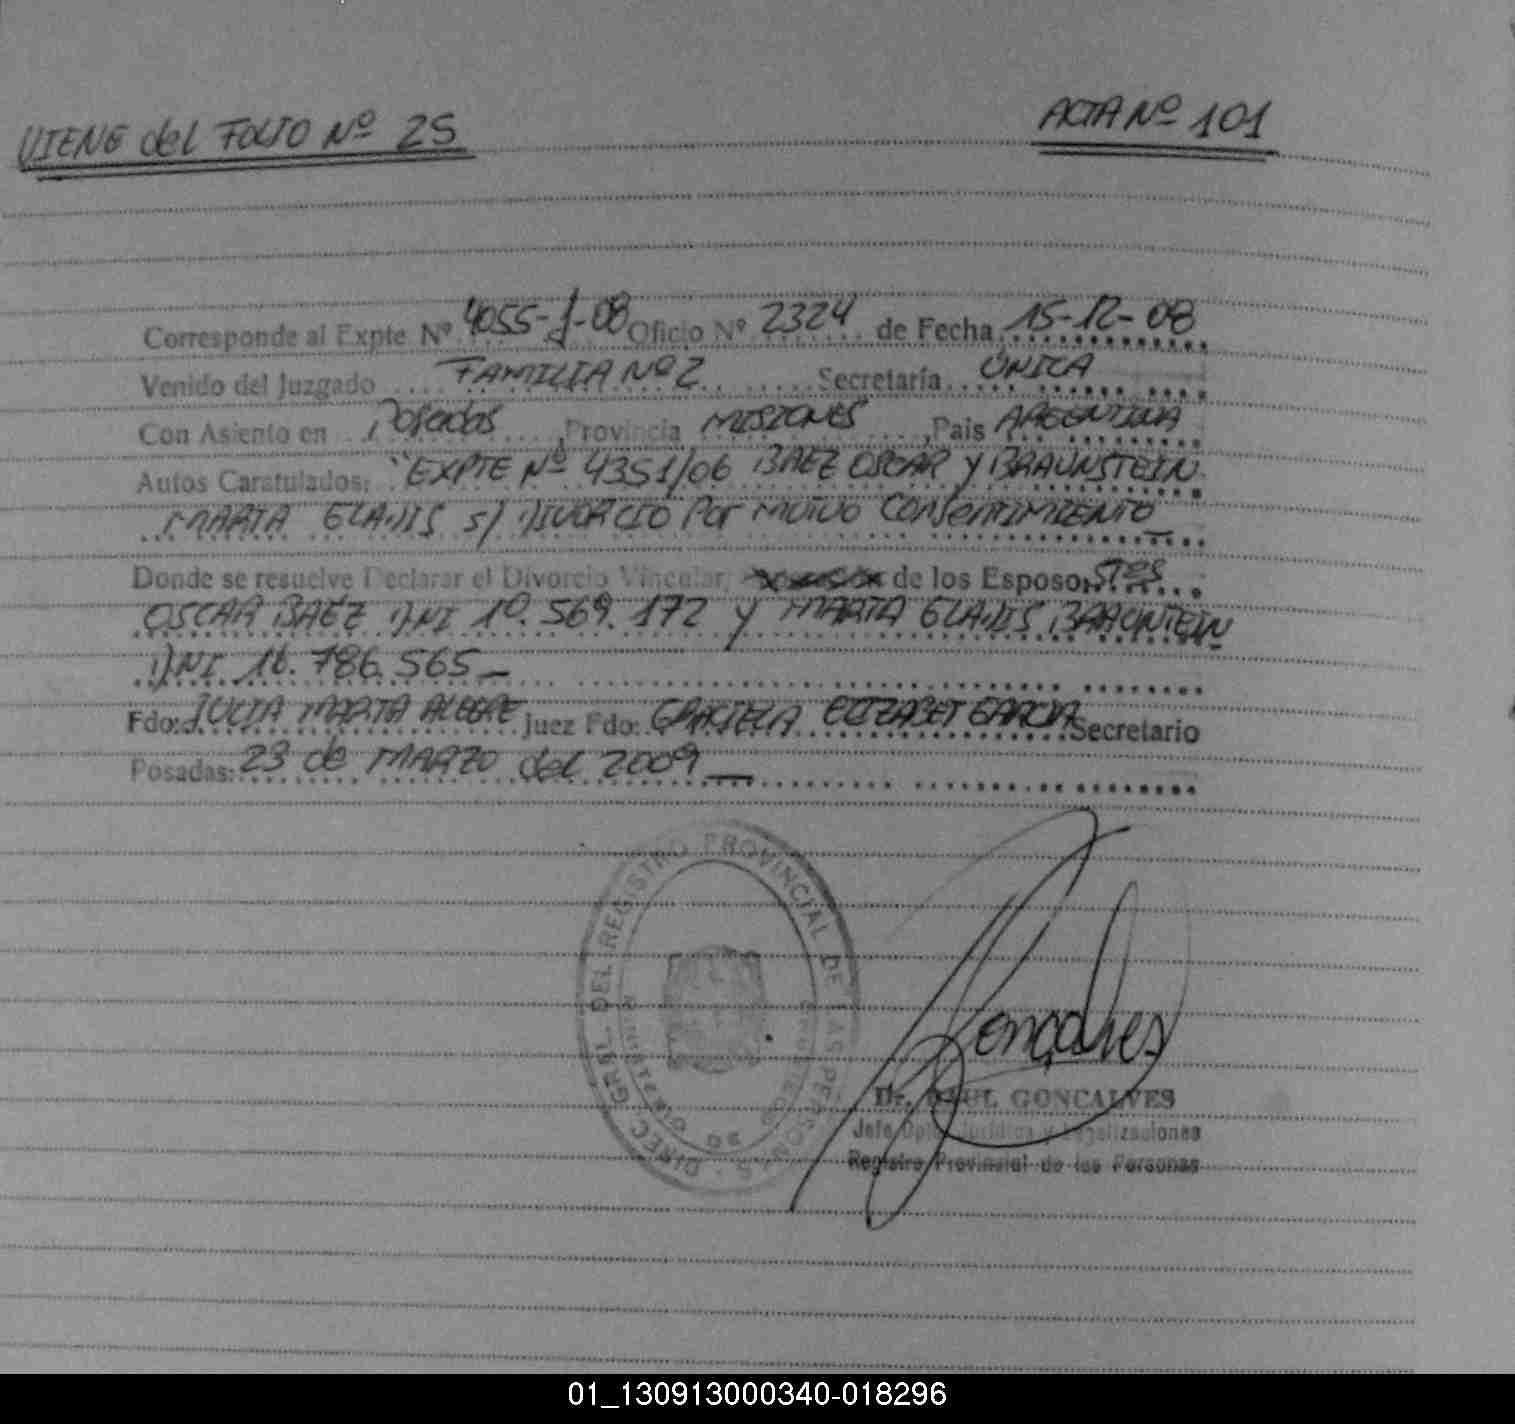 VIENE del FOLIO Nº 25
ACTA Nº 101
Corresponde al Expte Nº 4055-J-08 Oficio Nº 2324 de Fecha 15-12-08
Venido del Juzgado FAMILIA Nº 2 Secretaría ÚNICA
Con Asiento en Posadas, Provincia MISIONES, Pais ARGENTINA
Autos Caratulados: "EXPTE Nº 4351/06 BAEZ OSCAR y BRAUNSTEIN
MARTA GLADIS s/ DIVORCIO POR MUTUO CONSENTIMIENTO
Donde se resuelve Declarar el Divorcio Vincular, de los Esposos, STES
OSCAR BAÉZ DNI 10.569.172 y MARTA GLADIS BRAUNTEIN
DNI 16.786.565
Fdo: JULIA MARTA ALEGRE Juez Fdo: GRACIELA ELIZABET GARCIA Secretario
Posadas: 23 de MARZO del 2009
DIREC. GRAL. DEL REGISTRO PROVINCIAL DE LAS PERSONAS
Goncalves
Dr. RAUL GONCALVES
Jefe Dpto. Jurídico y Legalizaciones
Registro Provincial de las Personas
01_130913000340-018296